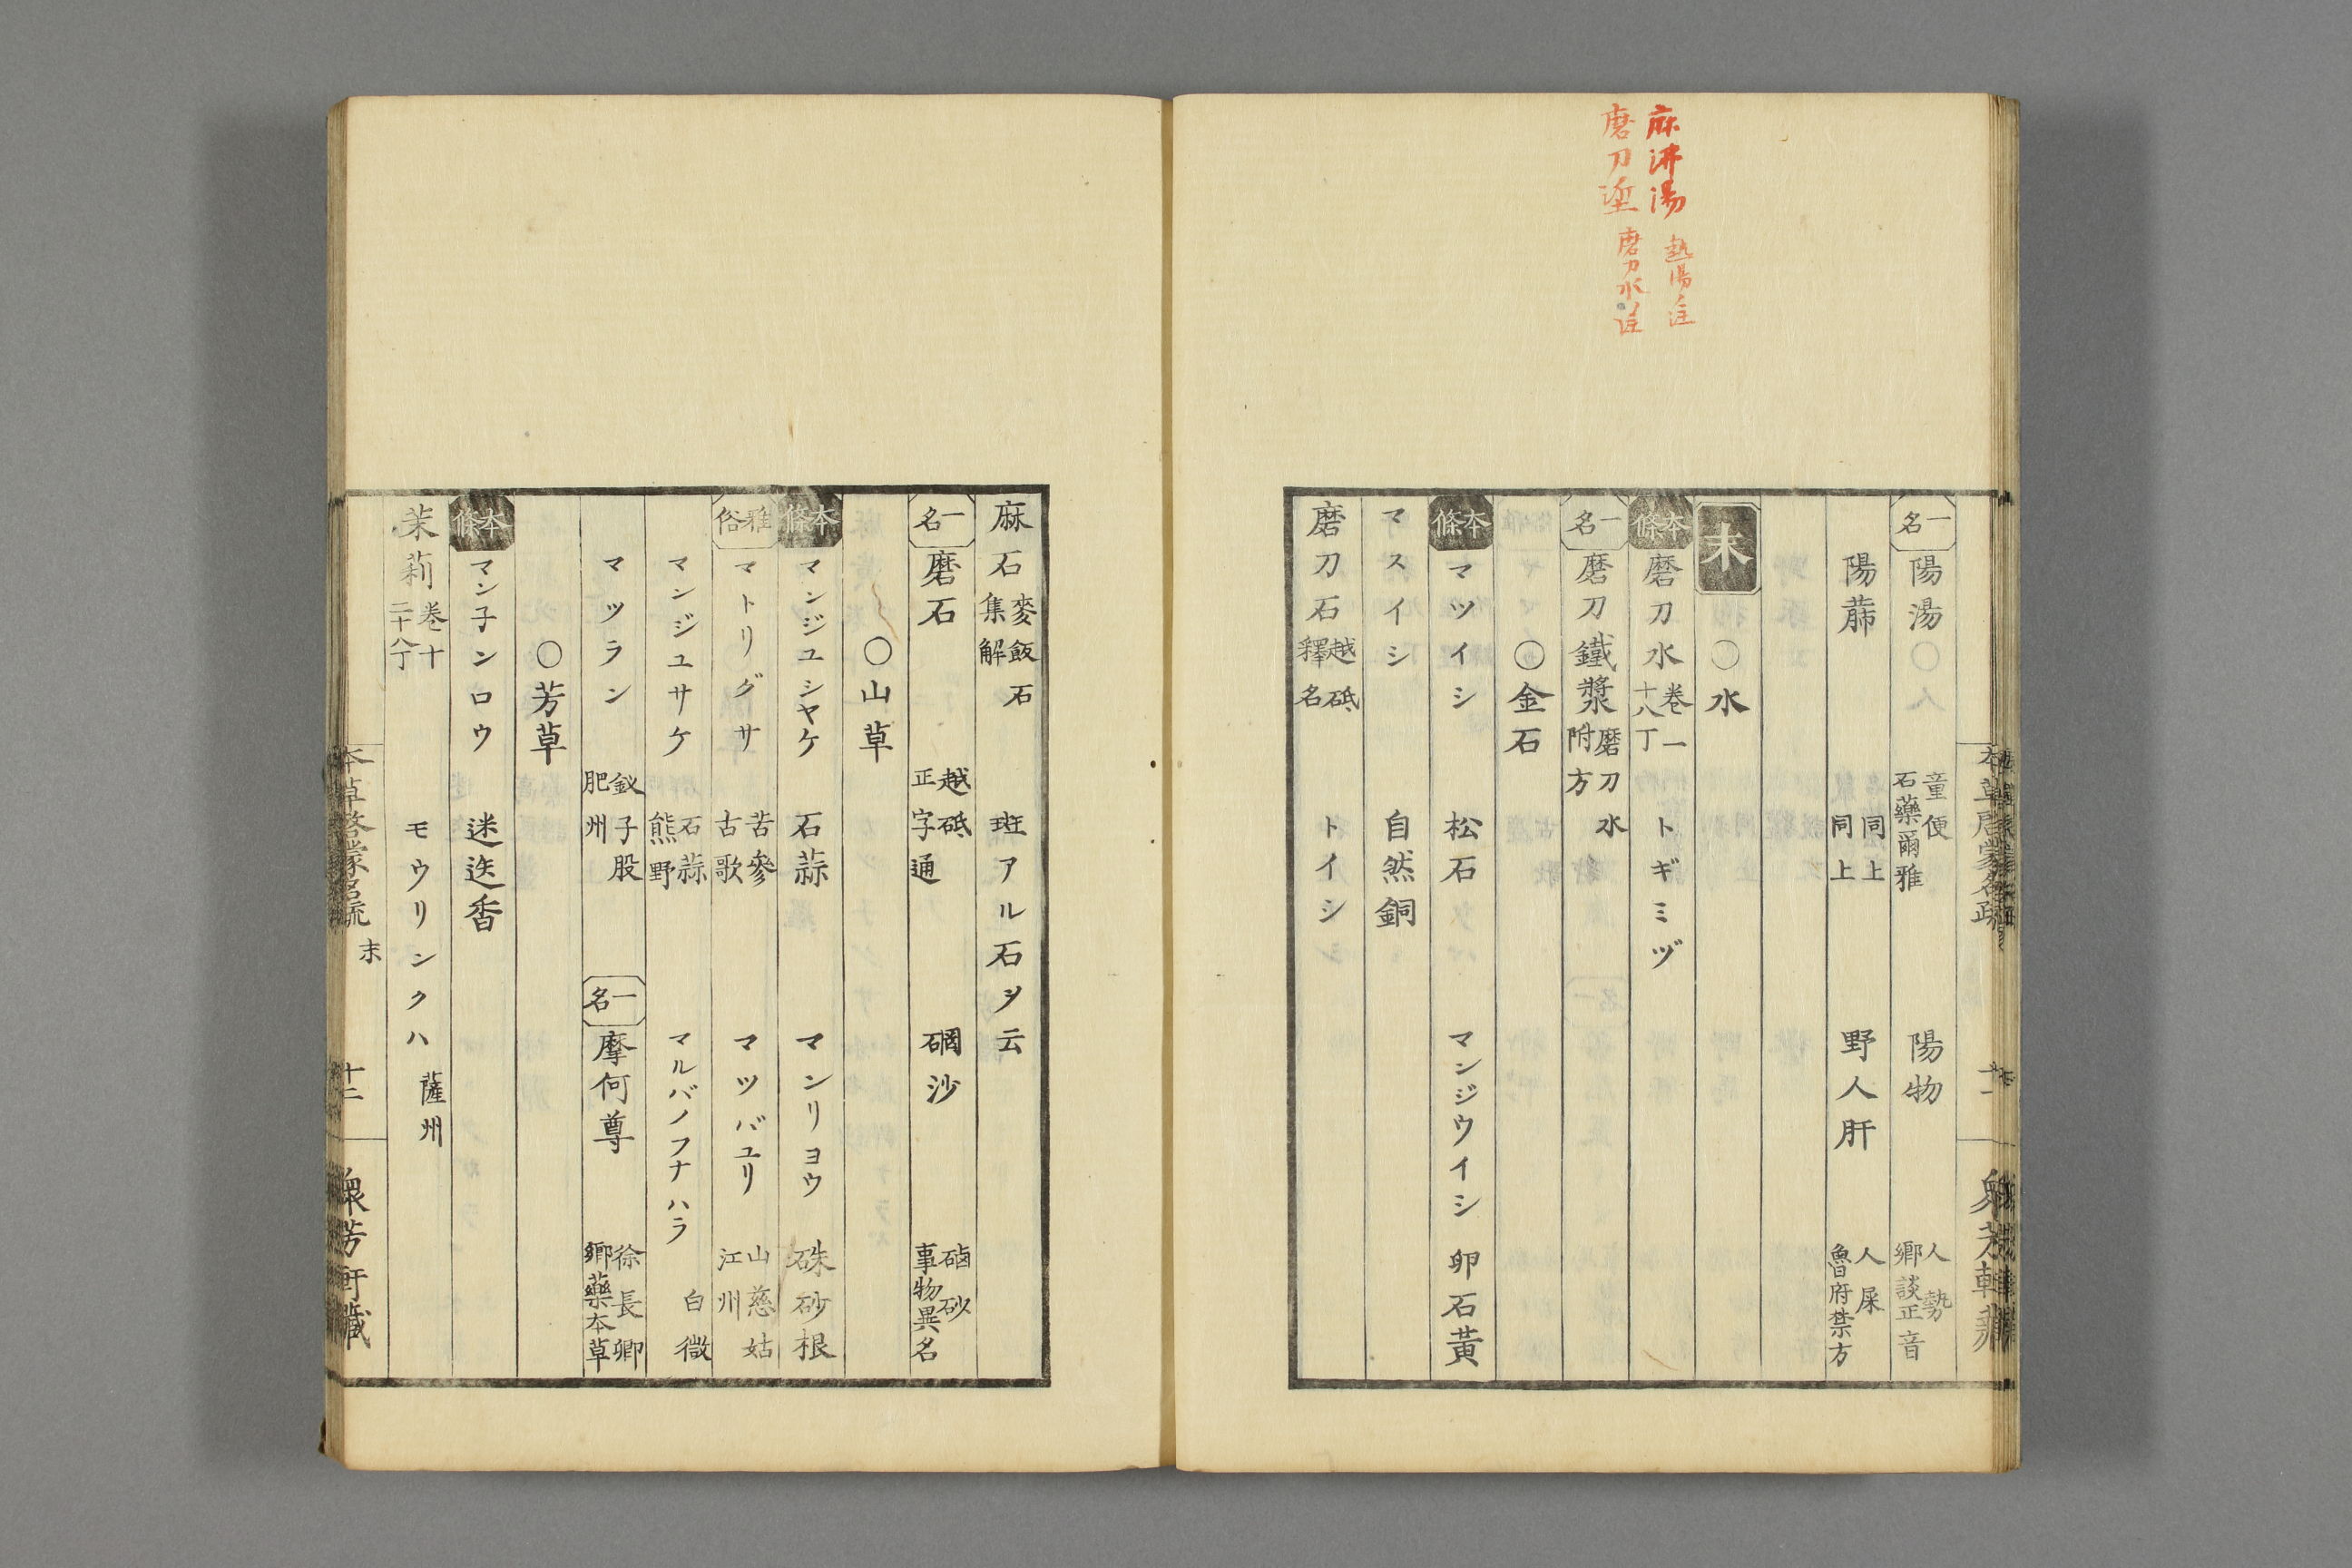 麻沸湯 熱湯ノ註
磨刀埿 磨刀水ノ註
一名 陽湯 童便 石藥爾雅 陽物 人勢 鄉談正音
陽蘬 同上 同上 野人肝 人屎 魯府禁方
末 ○水
本條 磨刀水 卷一 十八丁 トギミヅ
一名 磨刀鐵漿 磨刀水 附方
○金石
本條 マツイシ 松石 マンジウイシ 卵石黃
マスイシ 自然銅
磨刀石 越砥 釋名 トイシ
麻石 麥飯石 集解 斑アル石ヲ云
一名 磨石 越砥 正字通 碙沙 磠砂 事物異名
○山草
本條 マンジユシヤケ 石蒜 マンリヨウ 硃砂根
雅俗 マトリグサ 苦參 古歌 マツバユリ 山慈姑 江州
マンジユサケ 石蒜 熊野 マルバノフナハラ 白微
マツラン 釵子股 肥州 一名 摩何尊 徐長卿 鄉藥本草
○芳草
本條 マン子ンロウ 迷迭香
茉莉 卷十 二十八丁 モウリンクハ 薩州
本草啓蒙名疏 末 十二 衆芳軒藏